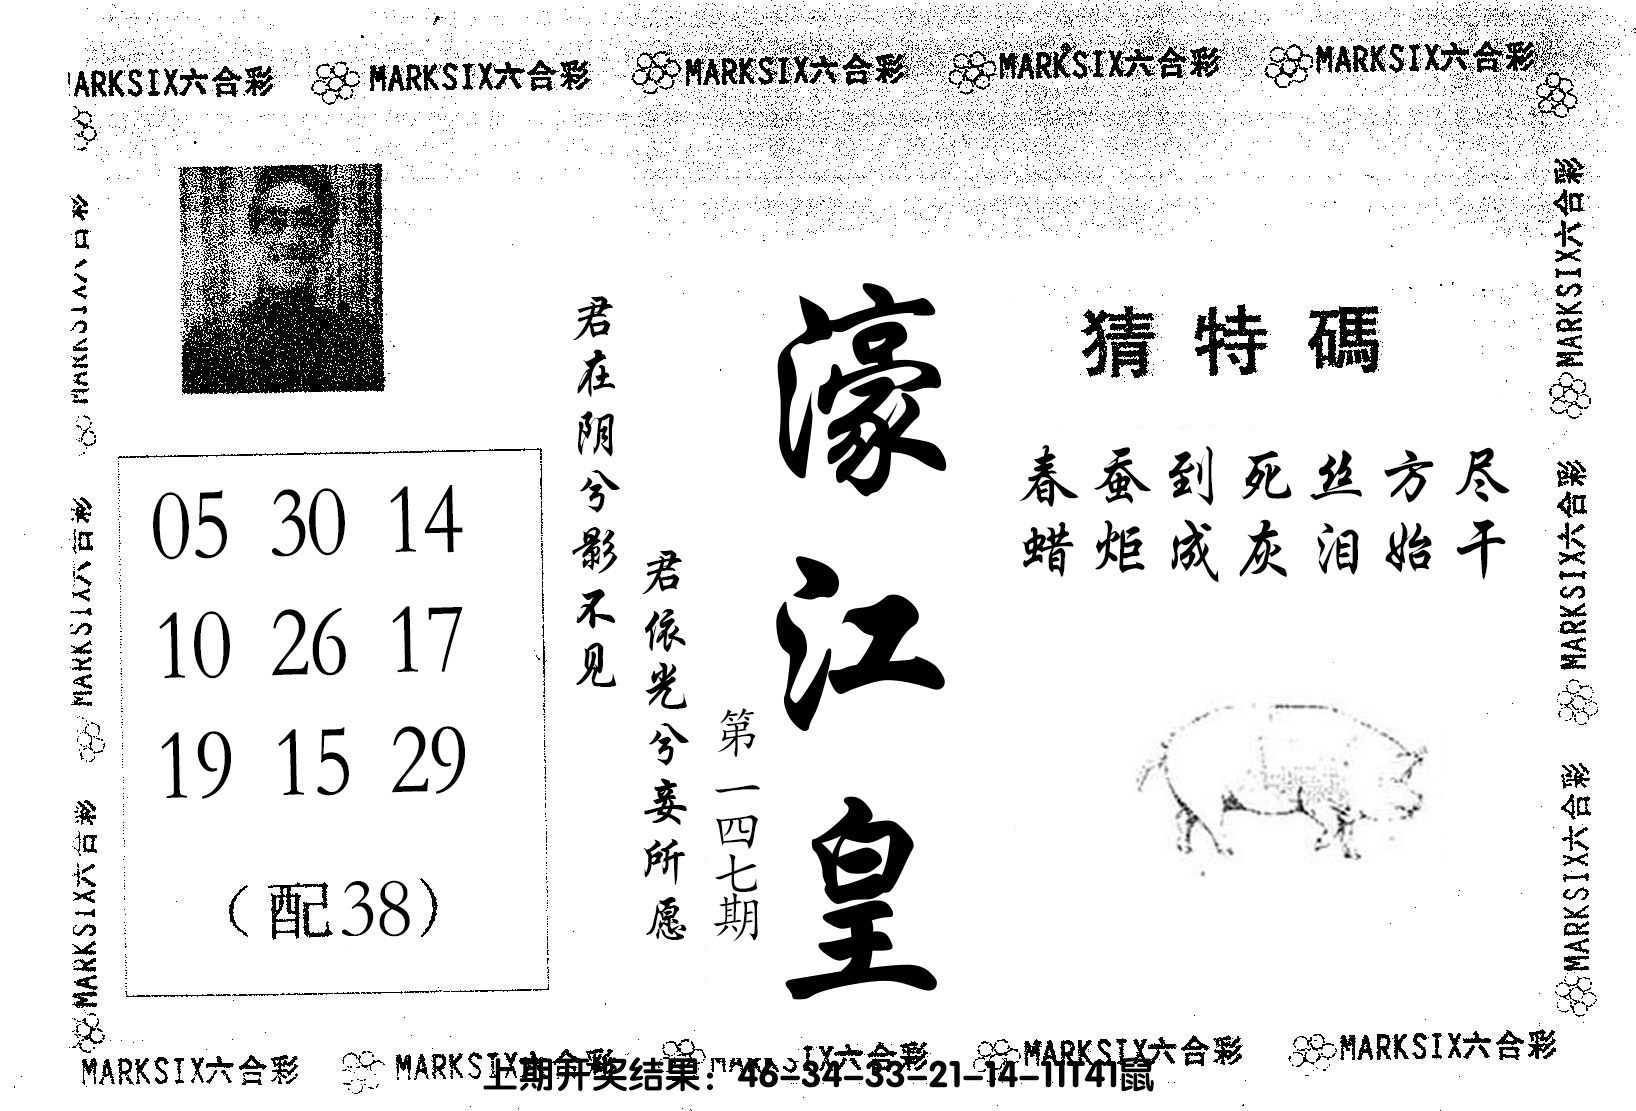 MARKSIX六合彩 MARKSIX六合彩 MARKSIX六合彩 MARKSIX六合彩 MARKSIX六合彩
猜特碼
春蚕到死丝方尽
蜡炬成灰泪始干
濠江皇
第一四七期
君在阴兮影不见
君依光兮妾所愿
05 30 14
10 26 17
19 15 29
（配38）
MARKSIX六合彩
MARKSIX六合彩
MARKSIX六合彩
MARKSIX六合彩
MARKSIX六合彩
MARKSIX六合彩
MARKSIX六合彩 MARKSIX六合彩 MARKSIX六合彩 MARKSIX六合彩 MARKSIX六合彩
上期开奖结果：46-34-33-21-14-11T41鼠